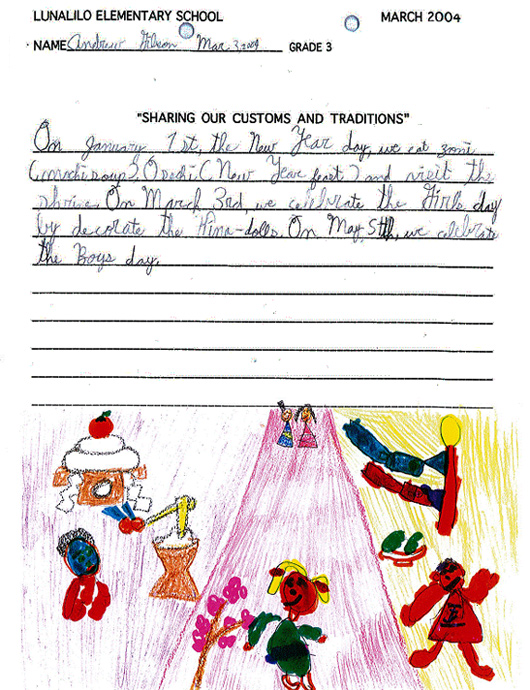 LUNALILO ELEMENTARY SCHOOL MARCH 2004
NAME Andrew Gibson Mar 3, 2004 GRADE 3
"SHARING OUR CUSTOMS AND TRADITIONS"
On January 1st, the New Year day, we eat zoni
(mochi soup) Osechi (New Year feast) and visit the
shrine. On March 3rd, we celebrate the Girls day
by decorate the Hina-dolls. On May 5th, we celebrate
the Boys day.